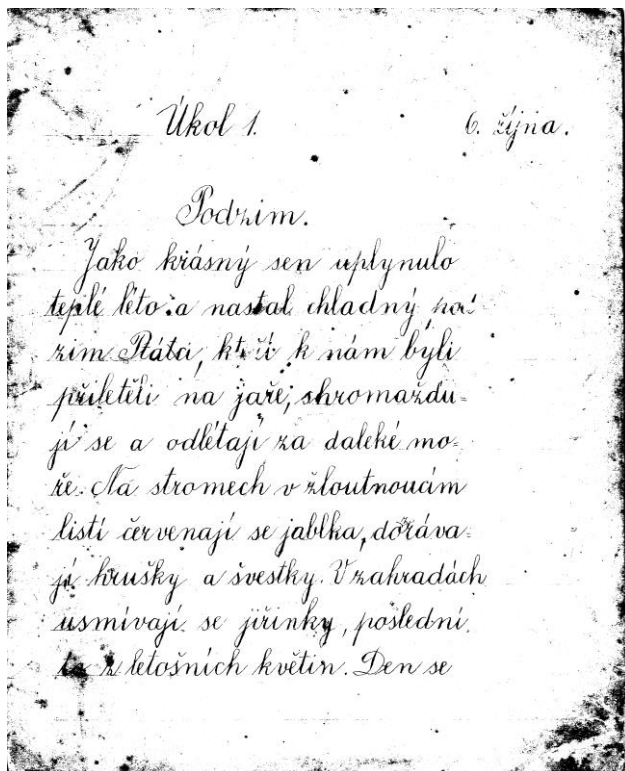 Úkol 1. 6. října.
Podzim.
Jako krásný sen uplynulo
teplé léto a nastal chladný pod
zim. Ptáci, kteří k nám byli
přiletěli na jaře, shromažďu-
jí se a odlétají za daleké mo-
ře. Na stromech v žloutnoucím
listí červenají se jablka, dozráva-
jí hrušky a švestky. V zahradách
usmívají se jiřinky, poslední
z letošních květin. Den se